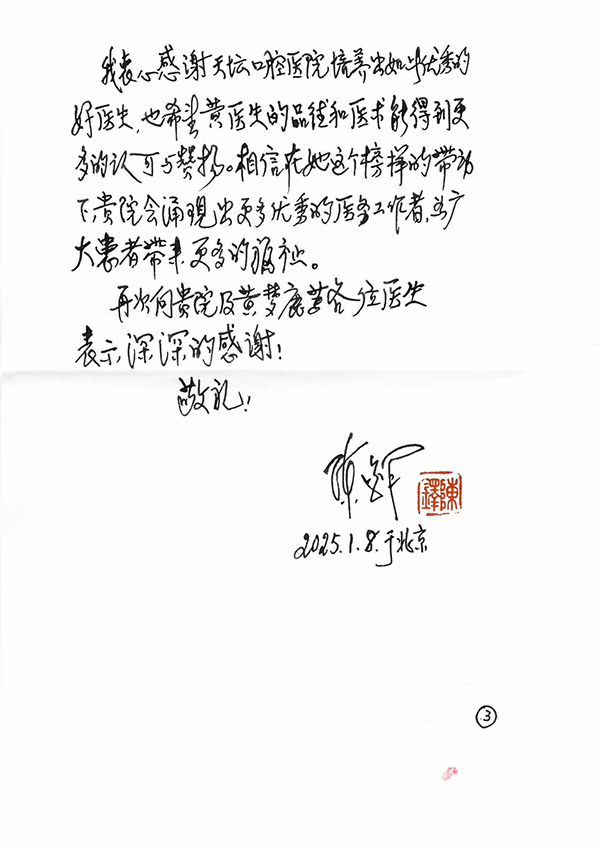 我衷心感谢天坛口腔医院培养出如此优秀的
好医生，也希望黄医生的品德和医术能得到更
多的认可与赞扬。相信在她这个榜样的带动
下贵院会涌现出更多优秀的医务工作者，为广
大患者带来更多的福祉。
再次向贵院及黄梦鹿等各位医生
表示深深的感谢！
敬礼！
陈铎
陳鐸
2025.1.8.于北京
③